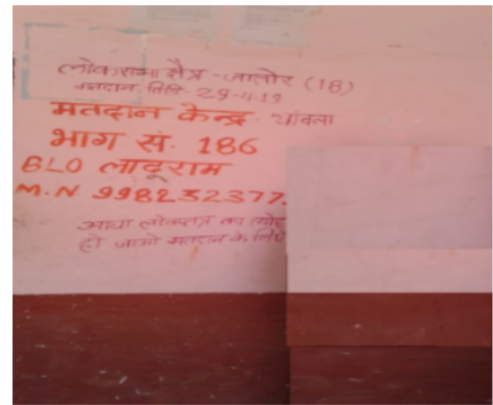 लोकसभा क्षेत्र - जालोर (18)
मतदान तिथि 29-4-19
मतदान केन्द्र - थांवला
भाग सं. 186
BLO लादूराम
M.N 998232377
आया लोकतंत्र का त्योंहार
हो जाओ मतदान के लिए